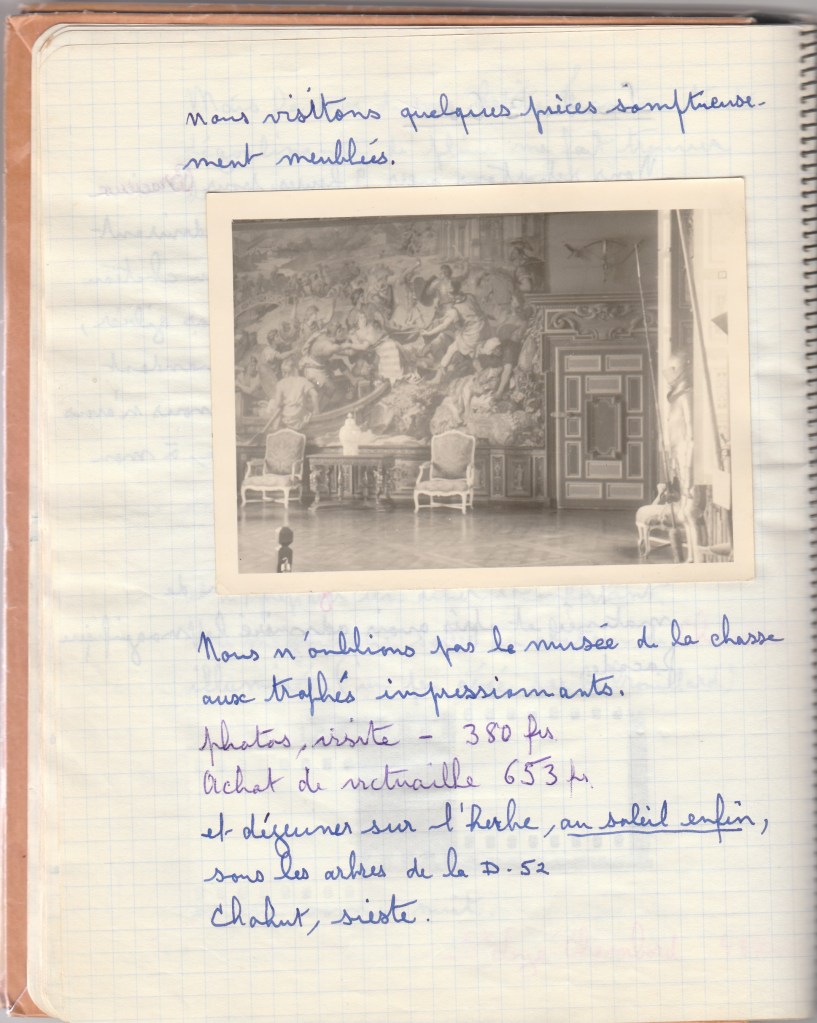 nous visitons quelques pièces somptueuse-
ment meublées.
Nous n'oublions pas le musée de la chasse
aux trophés impressionnants.
photos, visite - 380 frs
Achat de victuaille 653 frs
et déjeuner sur l'herbe, au soleil enfin,
sous les arbres de la D-52
Chahut, sieste.